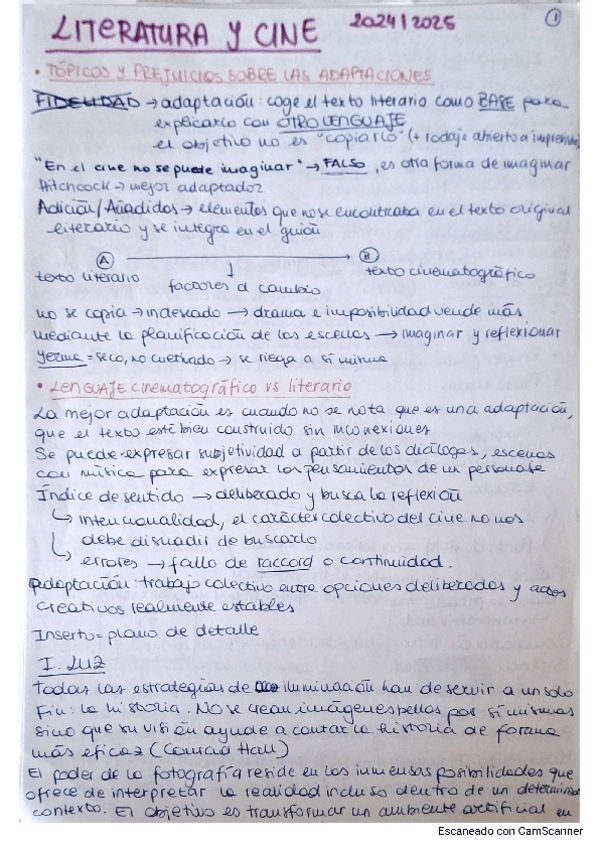 LITERATURA Y CINE 2024/2025 1
• TÓPICOS Y PREJUICIOS SOBRE LAS ADAPTACIONES
FIDELIDAD → adaptación: coge el texto literario como BASE para
explicarlo con OTRO LENGUAJE
el objetivo no es "copiarlo" (+ rodaje abierto a imprevistos)
"En el cine no se puede imaginar" → FALSO, es otra forma de imaginar
Hitchcock → mejor adaptador
Adición/Añadidos → elementos que no se encontraba en el texto original
literario y se integra en el guión
A → B
texto literario texto cinematográfico
factores d cambio
no se copia → indexado → drama e imposibilidad vende más
mediante la planificación de las escenas → imaginar y reflexionar
Yerma = seco, no cultivado → se riega a sí misma
• Lenguaje cinematográfico vs literario
La mejor adaptación es cuando no se nota que es una adaptación,
que el texto esté bien construido sin inconexiones
Se puede expresar subjetividad a partir de los diálogos, escenas
con música para expresar los pensamientos de un personaje
Índice de sentido → deliberado y busca la reflexión
↳ intencionalidad, el carácter colectivo del cine no nos
debe disuadir de buscarlo
↳ errores → fallo de raccord o continuidad.
Adaptación trabajo colectivo entre opciones deliberadas y actos
creativos realmente estables
Inserto = plano de detalle
I. LUZ
Todas las estrategias de iluminación han de servir a un solo
fin: la historia. No se crean imágenes bellas por sí mismas
sino que su visión ayude a contar la historia de forma
más eficaz (Conrad Hall)
El poder de la fotografía reside en las inmensas posibilidades que
ofrece de interpretar la realidad incluso dentro de un determinado
contexto. El objetivo es transformar un ambiente artificial en
Escaneado con CamScanner